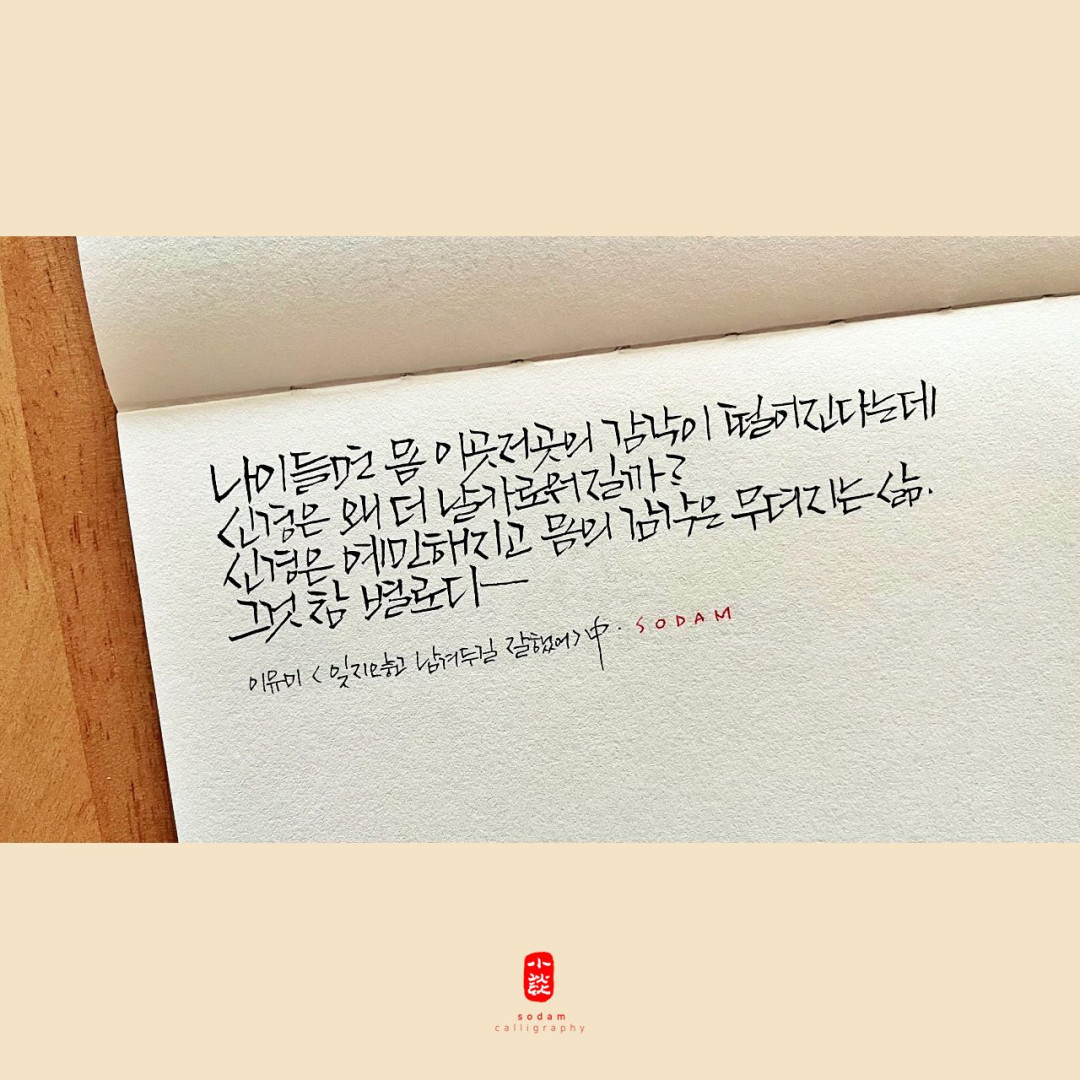 나이들면 몸 이곳저곳의 감각이 떨어진다는데
신경은 왜 더 날카로워질까?
신경은 예민해지고 몸의 감각은 무뎌지는 삶.
그것 참 별로다—
이유미 <잊지않고 남겨두길 잘했어> 中. SODAM
小談
sodam
calligraphy